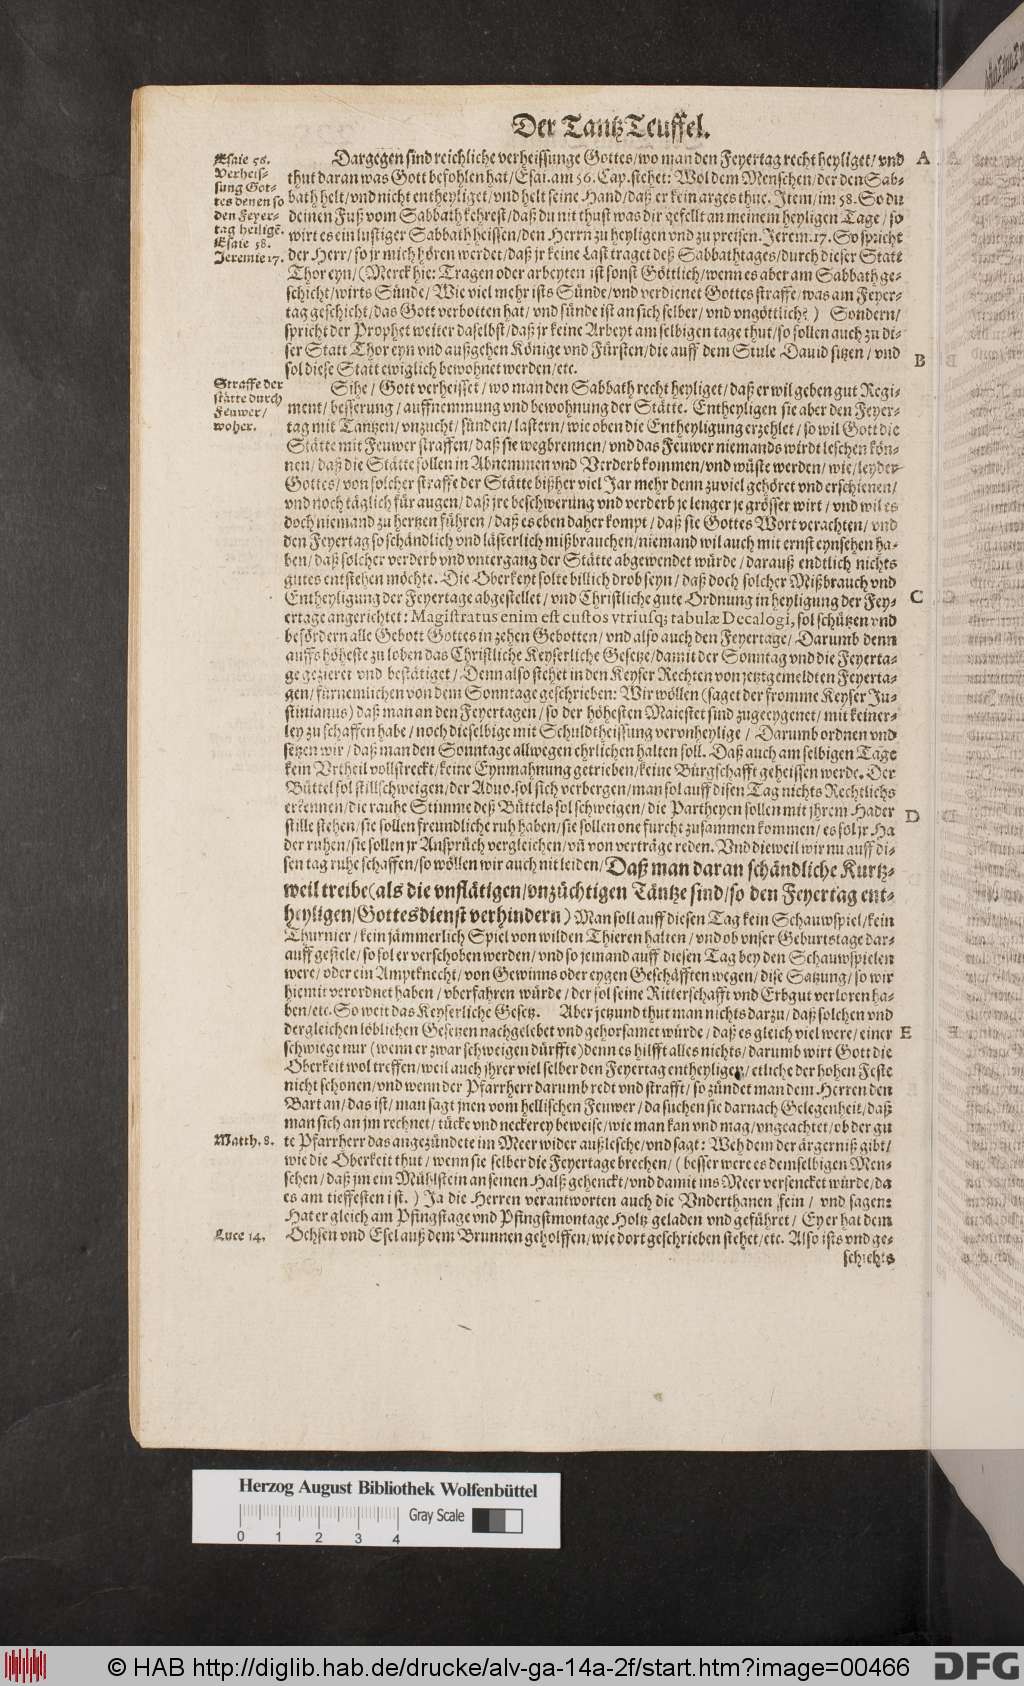 Der Tantz Teuffel.
Esaie 58.
Verheis-
sung Got-
tes denen so
den Feyer-
tag heiligẽ.
Esaie 58.
Jeremie 17.
Dargegen sind reichliche verheissunge Gottes/ wo man den Feyertag recht heyliget/ vnd
thut daran was Gott befohlen hat/ Esai. am 56. Cap. stehet: Wol dem Menschen/ der den Sab-
bath helt/ vnd nicht entheyliget/ vnd helt seine Hand/ daß er kein arges thue. Item/ im 58. So du
deinen Fuß vom Sabbath kehrest/ daß du nit thust was dir gefellt an meinem heyligen Tage/ so
wirt es ein lustiger Sabbath heissen/ den Herrn zu heyligen vnd zu preisen. Jerem. 17. So spricht
der Herr/ so jr mich hören werdet/ daß jr keine Last traget deß Sabbathtages/ durch dieser Statt
Thor eyn/ (Merck hie: Tragen oder arbeyten ist sonst Göttlich/ wenn es aber am Sabbath ge-
schicht/ wirts Sünde/ Wie viel mehr ists Sünde/ vnd verdienet Gottes straffe/ was am Feyer-
tag geschicht/ das Gott verbotten hat/ vnd sünde ist an sich selber/ vnd vngöttlich?) Sondern/
spricht der Prophet weiter daselbst/ daß jr keine Arbeyt am selbigen tage thut/ so sollen auch zu di-
ser Statt Thor eyn vnd außgehen Könige vnd Fürsten/ die auff dem Stule Dauid sitzen/ vnd
sol diese Statt ewiglich bewohnet werden/ etc.
Straffe der
stätte durch
Feuwer/
woher.
Sihe/ Gott verheisset/ wo man den Sabbath recht heyliget/ daß er wil geben gut Regi-
ment/ besserung/ auffnemmung vnd bewohnung der Stätte. Entheyligen sie aber den Feyer-
tag mit Tantzen/ vnzucht/ sünden/ lastern/ wie oben die Entheyligung erzehlet/ so wil Gott die
Stätte mit Feuwer straffen/ daß sie wegbrennen/ vnd das Feuwer niemands wirdt leschen kön-
nen/ daß die Stätte sollen in Abnemmen vnd Verderb kommen/ vnd wüste werden/ wie/ leyder
Gottes/ von solcher straffe der Stätte bißher viel Jar mehr denn zuviel gehöret vnd erschienen/
vnd noch täglich für augen/ daß jre beschwerung vnd verderb je lenger je grösser wirt/ vnd wil es
doch niemand zu hertzen führen/ daß es eben daher kompt/ daß sie Gottes Wort verachten/ vnd
den Feyertag so schändlich vnd lästerlich mißbrauchen/ niemand wil auch mit ernst eynsehen ha-
ben/ daß solcher verderb vnd vntergang der Stätte abgewendet würde/ darauß endtlich nichts
gutes entstehen möchte. Die Oberkeyt solte billich drob seyn/ daß doch solcher Mißbrauch vnd
Entheyligung der Feyertage abgestellet/ vnd Christliche gute Ordnung in heyligung der Fey-
ertage angerichtet: Magistratus enim est custos vtriusq; tabulæ Decalogi, sol schützen vnd
befördern alle Gebott Gottes in zehen Gebotten/ vnd also auch den Feyertage/ Darumb denn
auffs höheste zu loben das Christliche Keyserliche Gesetze/ damit der Sonntag vnd die Feyerta-
ge gezieret vnd bestätiget/ Denn also stehet in den Keyser Rechten von jetztgemeldten Feyerta-
gen/ fürnemlichen von dem Sonntage geschrieben: Wir wöllen (saget der fromme Keyser Ju-
stinianus) daß man an den Feyertagen/ so der höhesten Maiestet sind zugeeygenet/ mit keiner-
ley zu schaffen habe/ noch dieselbige mit Schuldtheissung vervnheylige/ Darumb ordnen vnd
setzen wir/ daß man den Sonntage allwegen ehrlichen halten soll. Daß auch am selbigen Tage
kein Vrtheil vollstreckt/ keine Eynmahnung getrieben/ keine Bürgschafft geheissen werde. Der
Büttel sol stillschweigen/ der Aduo. sol sich verbergen/ man sol auff disen Tag nichts Rechtlichs
erkennen/ die rauhe Stimme deß Büttels sol schweigen/ die Partheyen sollen mit jhrem Hader
stille stehen/ sie sollen freundliche ruh haben/ sie sollen one furcht zusammen kommen/ es sol jr Ha
der ruhen/ sie sollen jr Ansprüch vergleichen/ vñ von verträge reden. Vnd dieweil wir nu auff di-
sen tag ruhe schaffen/ so wöllen wir auch nit leiden/ Daß man daran schändliche Kurtz-
weil treibe (als die vnflätigen/ vnzüchtigen Täntze sind/ so den Feyertag ent-
heyligen/ Gottesdienst verhindern) Man soll auff diesen Tag kein Schawspiel/ kein
Thurnier/ kein jämmerlich Spiel von wilden Thieren halten/ vnd ob vnser Geburtstage dar-
auff gefiele/ so sol er verschoben werden/ vnd so jemand auff diesen Tag bey den Schawspielen
were/ oder ein Amptknecht/ von Gewinns oder eygen Geschäfften wegen/ dise Satzung/ so wir
hiemit verordnet haben/ vberfahren würde/ der sol seine Ritterschafft vnd Erbgut verloren ha-
ben/ etc. So weit das Keyserliche Gesetz. Aber jetzund thut man nichts darzu/ daß solchen vnd
dergleichen löblichen Gesetzen nachgelebet vnd gehorsamet würde/ daß es gleich viel were/ einer
schwiege nur (wenn er zwar schweigen dürffte) denn es hilfft alles nichts/ darumb wirt Gott die
Oberkeit wol treffen/ weil auch jhrer viel selber den Feyertag entheyligen/ etliche der hohen Feste
nicht schonen/ vnd wenn der Pfarrherr darumb redt vnd strafft/ so zündet man dem Herren den
Bart an/ das ist/ man sagt jnen vom hellischen Feuwer/ da suchen sie darnach Gelegenheit/ daß
man sich an jm rechnet/ tücke vnd neckerey beweise/ wie man kan vnd mag/ vngeachtet/ ob der gu
Matth. 8.
te Pfarrherr das angezündete im Meer wider außlesche/ vnd sagt: Weh dem der ärgerniß gibt/
wie die Oberkeit thut/ wenn sie selber die Feyertage brechen/ (besser were es demselbigen Men-
schen/ daß jm ein Mühlstein an seinen Halß gehenckt/ vnd damit ins Meer versencket würde/ da
es am tieffesten ist.) Ja die Herren verantworten auch die Vnderthanen fein/ vnd sagen:
Hat er gleich am Pfingstage vnd Pfingstmontage Holtz geladen vnd geführet/ Ey er hat dem
Luce 14.
Ochsen vnd Esel auß dem Brunnen geholffen/ wie dort geschrieben stehet/ etc. Also ists vnd ge-
schichts
A
B
C
D
E
Herzog August Bibliothek Wolfenbüttel
Gray Scale
0 1 2 3 4
© HAB http://diglib.hab.de/drucke/alv-ga-14a-2f/start.htm?image=00466
DFG